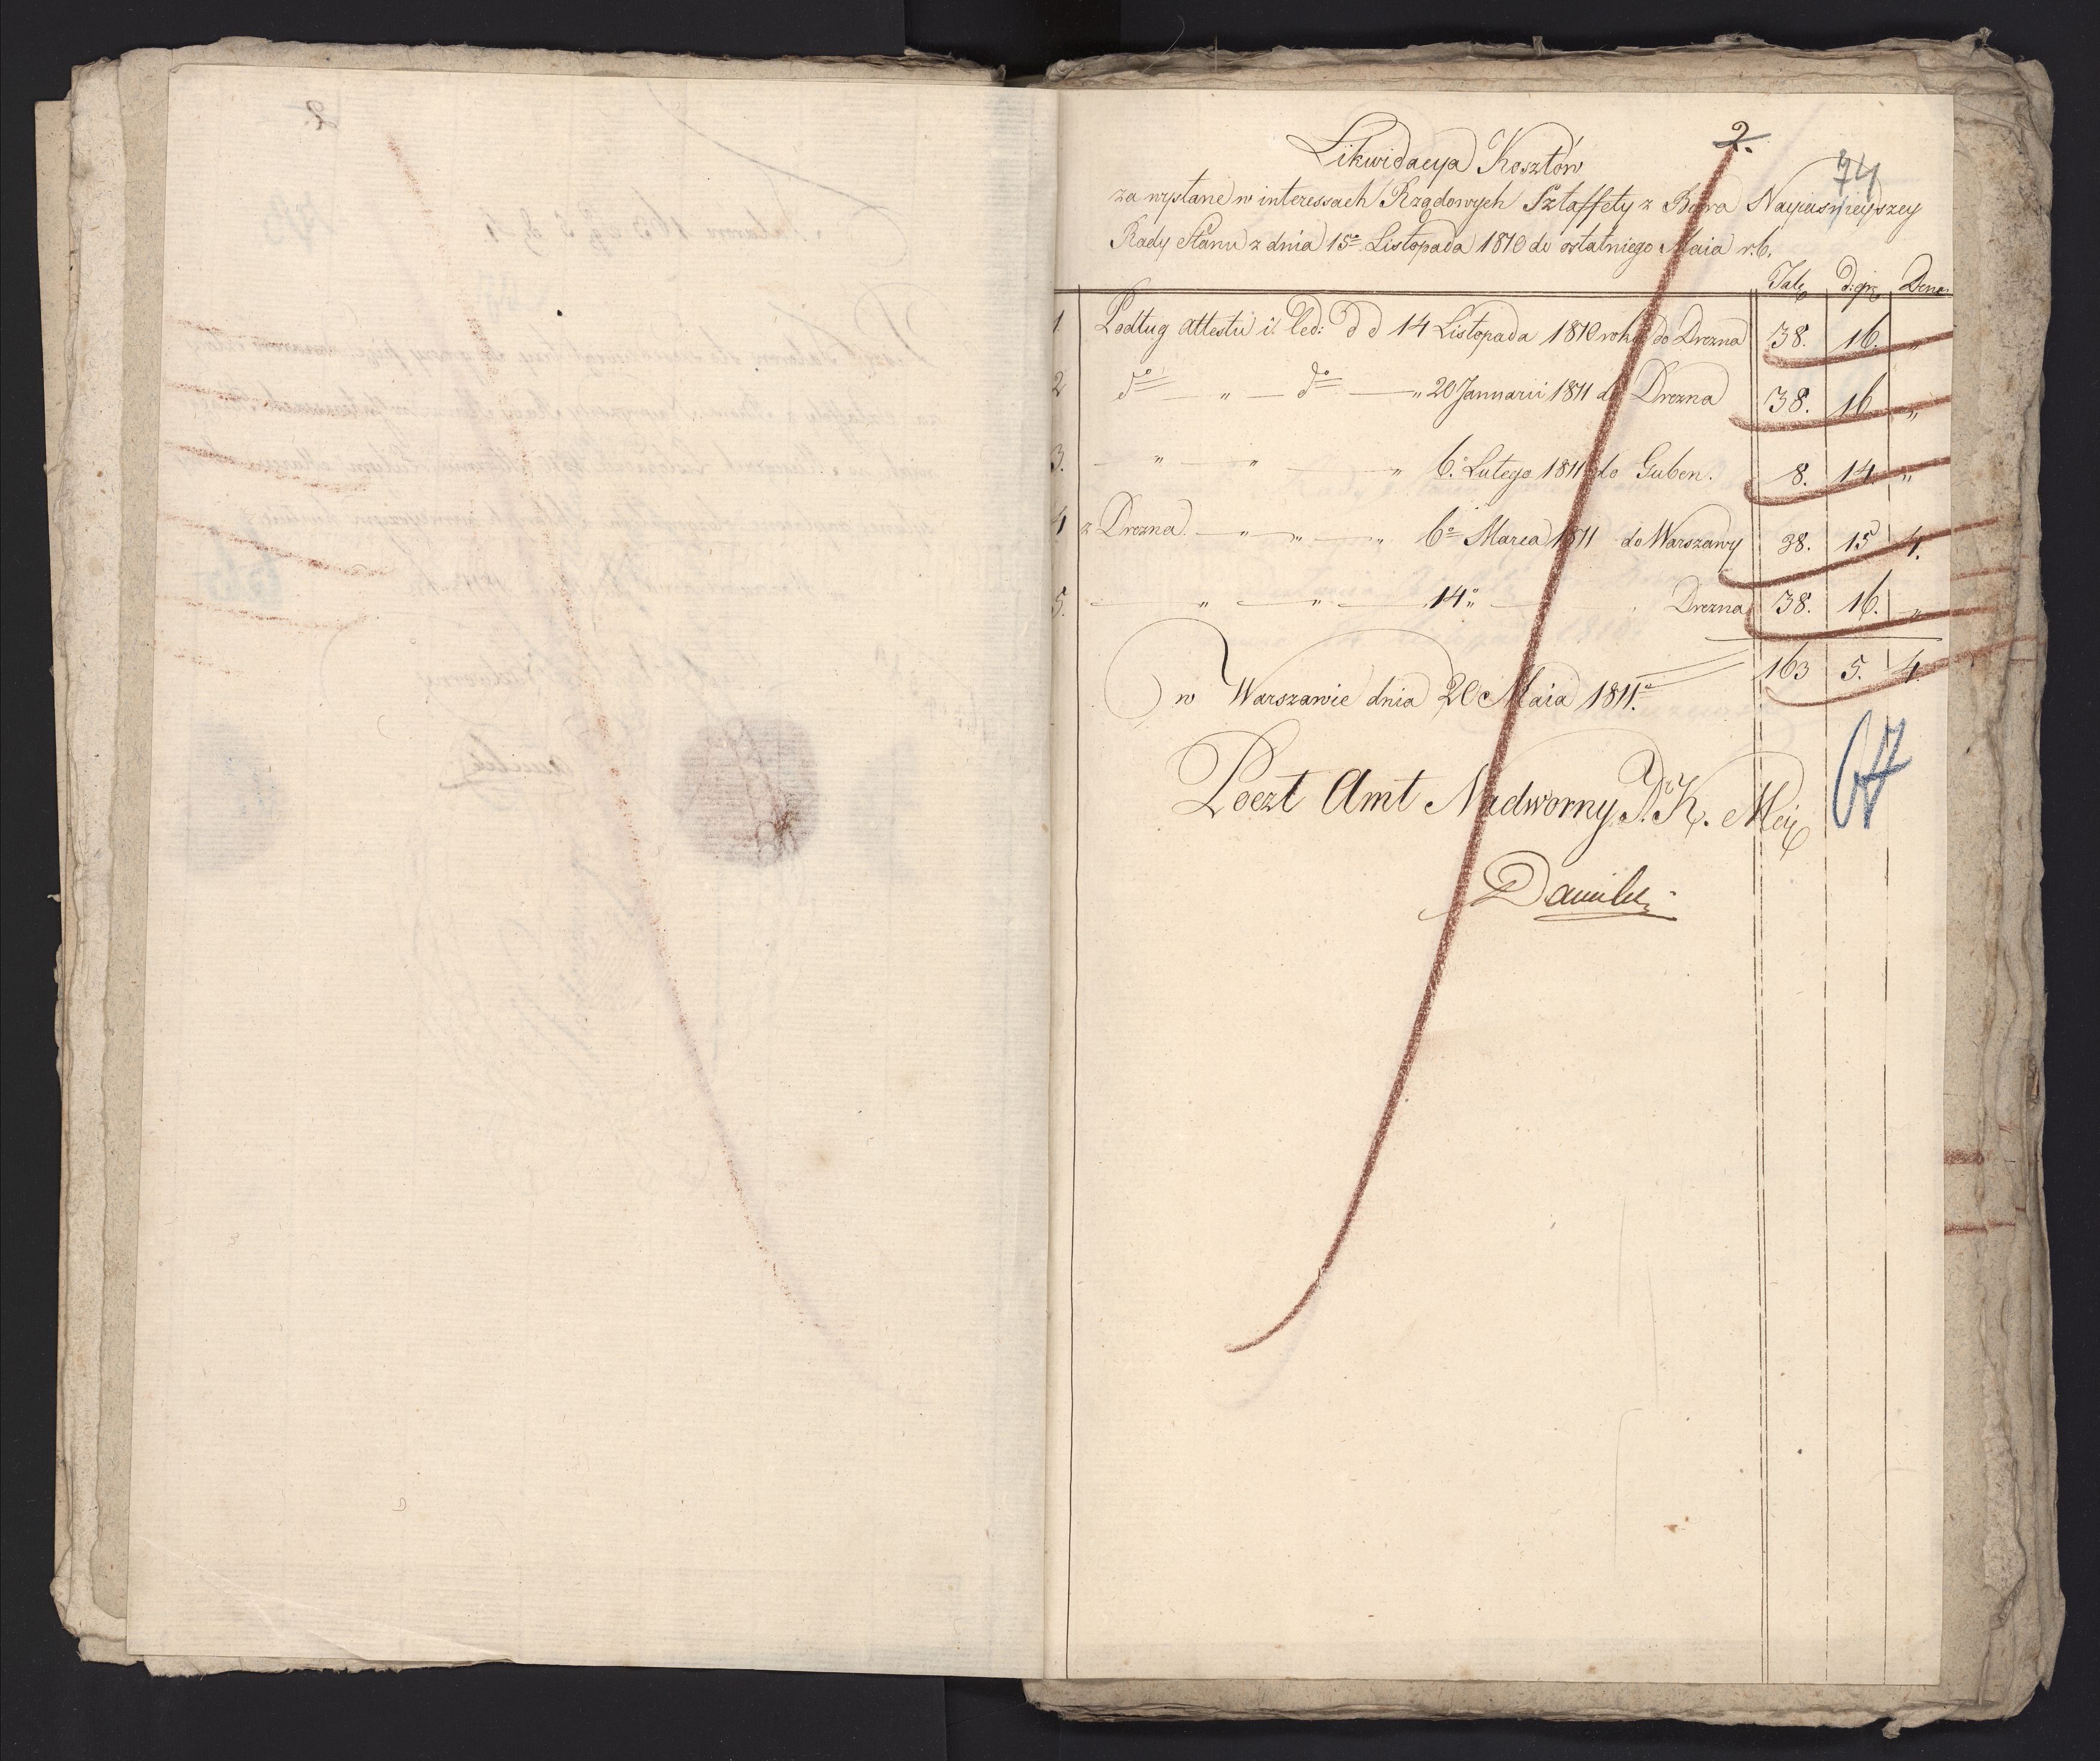 2.
74
Likwidacya Kosztów
za wysłane w interessach Rządowych Sztaffety z Bióra Nayiaśnieyszey
Rady Stanu z dnia 15º Listopada 1810 do ostatniego Maia r. b.
Tal. d:gr. Dena:
1. Podług attestu i. led: d d 14 Listopada 1810 roku do Drezna 38. 16. "
2 dº " dº " 20 Januarii 1811 do Drezna 38. 16 "
3. " " " 6.º Lutego 1811 do Guben. 8. 14. "
4 z Drezna " " " 6º Marca 1811 do Warszawy 38. 15 4.
5. " " 14º " Drezna 38. 16. "
163 5. 4.
w Warszawie dnia 20 Maia 1811.
67
Poczt Amt Nadworny J. K. Mci